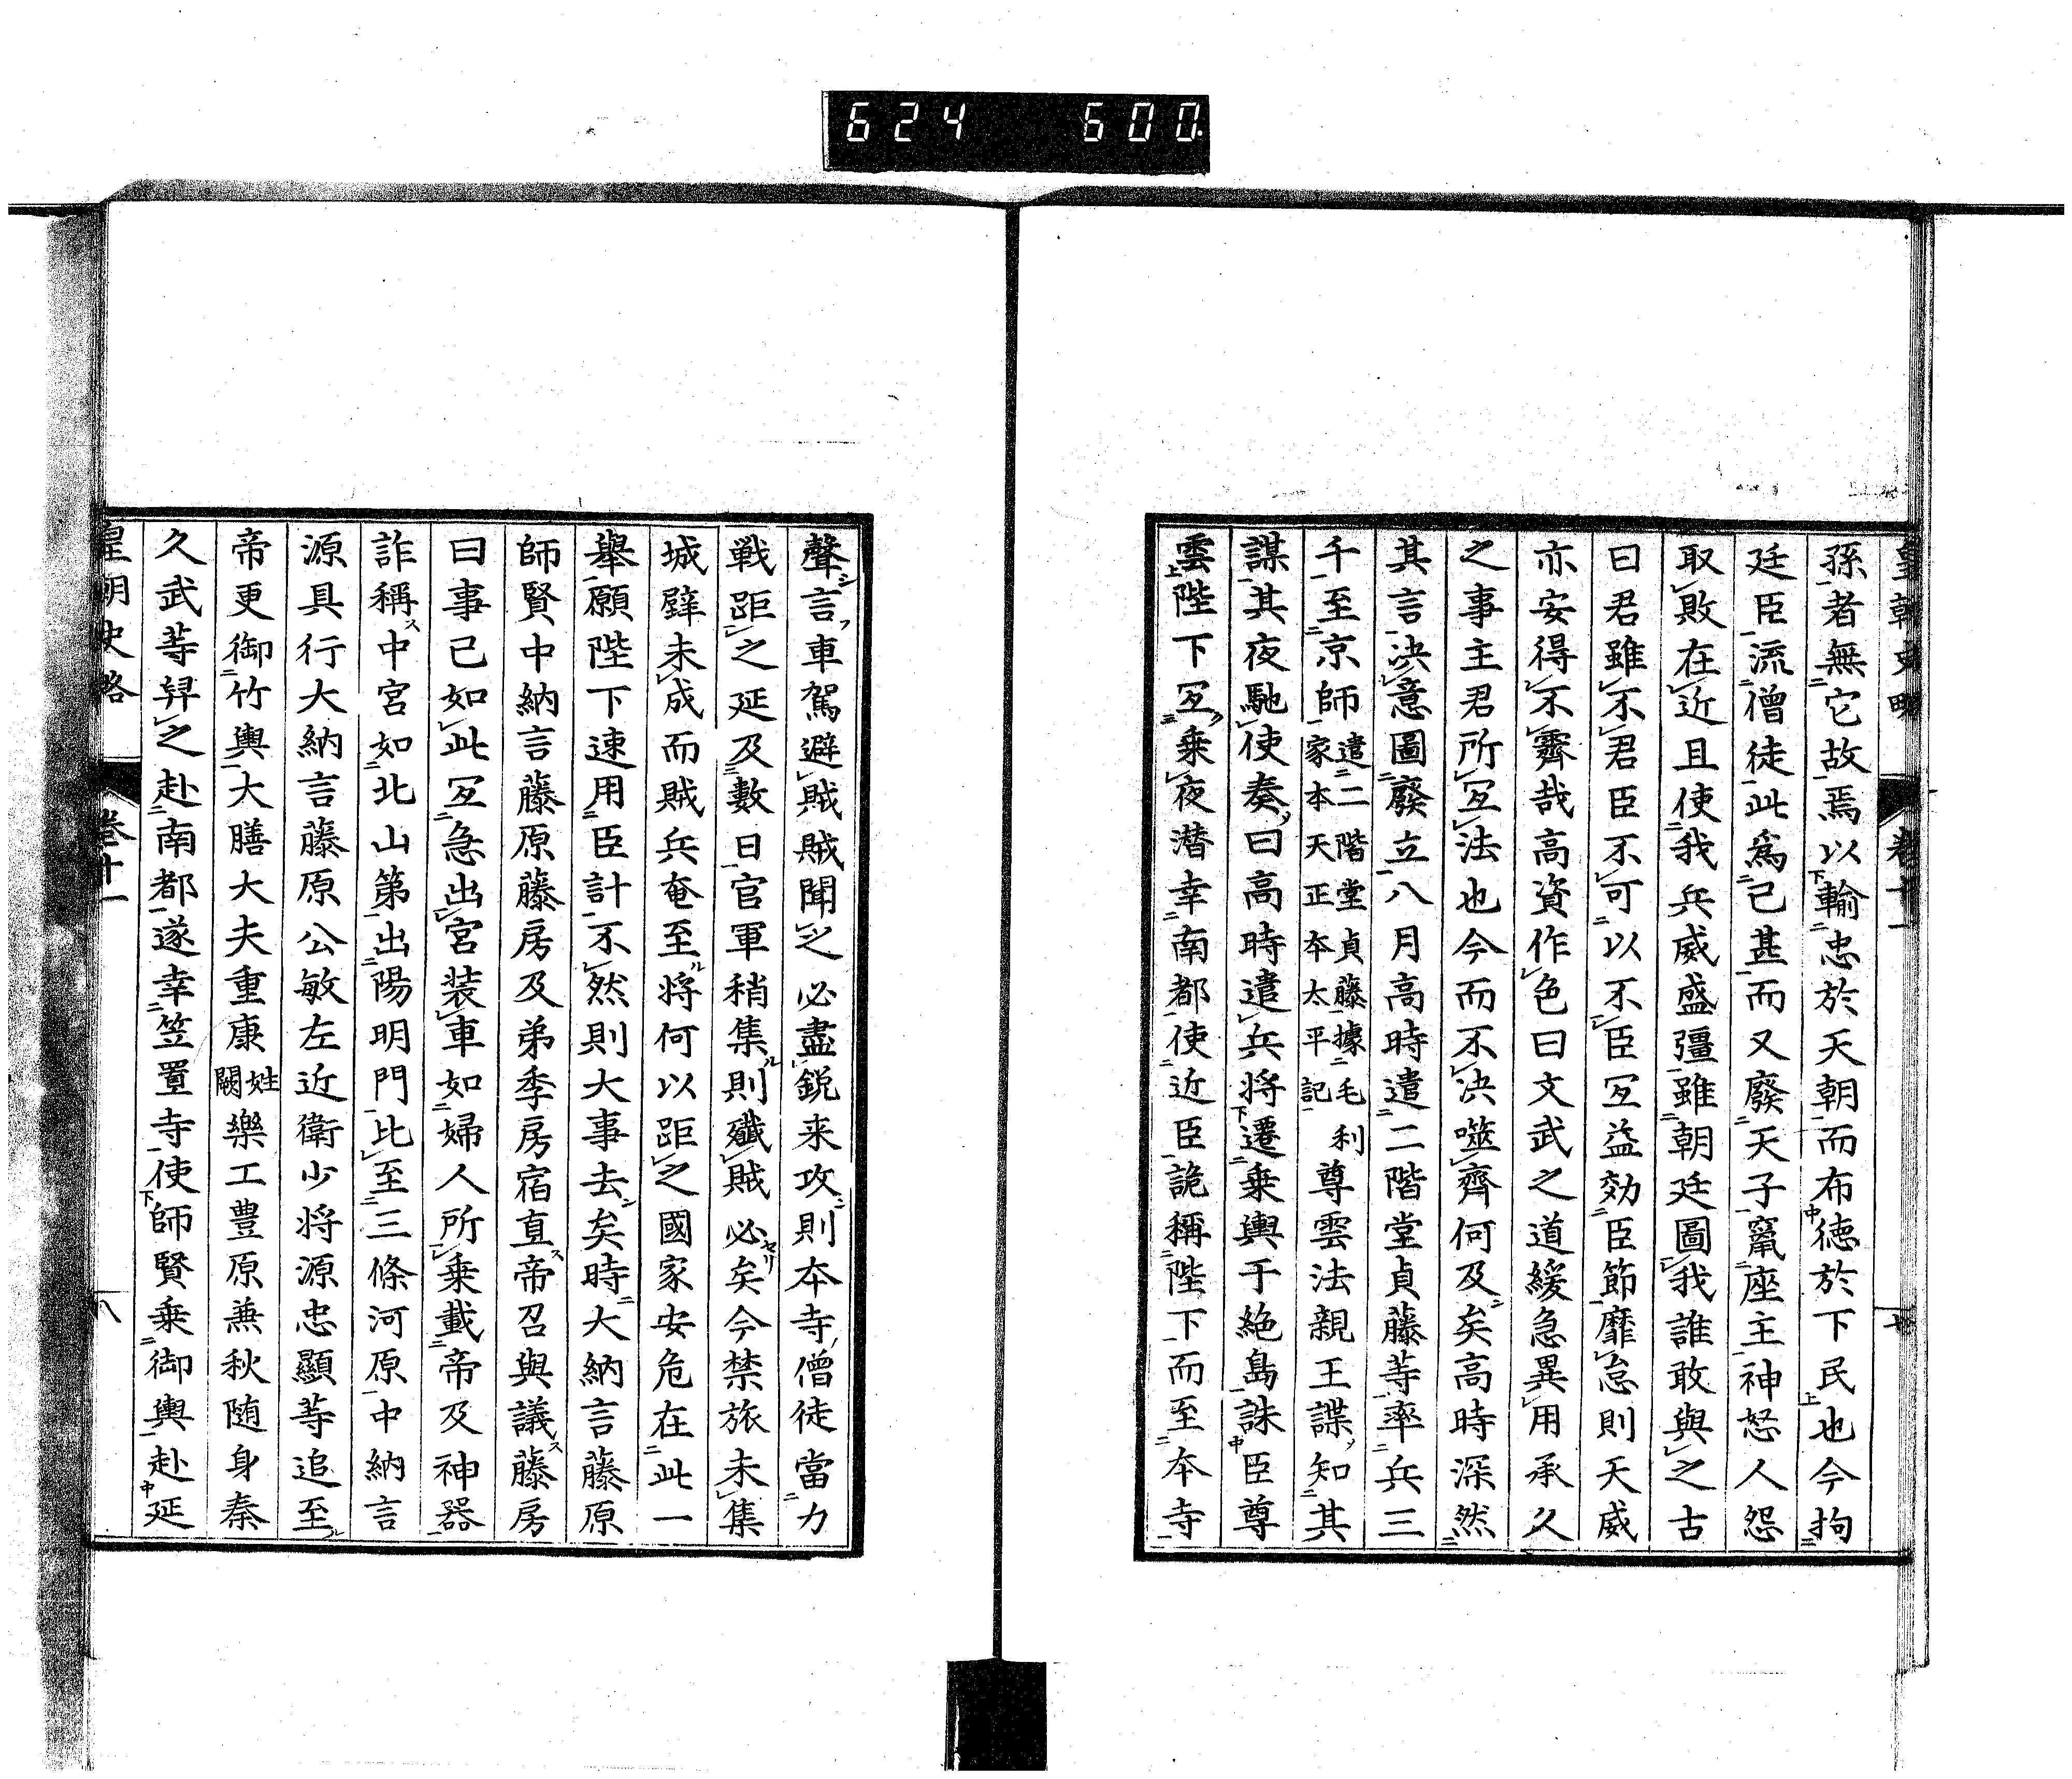 624 600
皇朝史略 卷十一 七
孫者無它故焉以輸忠於天朝而布徳於下民也今拘
廷臣流僧徒此爲已甚而又廢天子竄座主神怒人怨
取敗在近且使我兵威盛彊雖朝廷圖我誰敢與之古
曰君雖不君臣不可以不臣冝益効臣節靡怠則天威
亦安得不霽哉高資作色曰文武之道緩急異用承久
之事主君所冝法也今而不决噬齊何及矣高時深然
其言决意圖廢立八月高時遣二階堂貞藤等率兵三
千至京師遣二階堂貞藤據毛利家本天正夲太平記尊雲法親王諜知其
謀其夜馳使奏曰高時遣兵將遷乗輿于絶島誅臣尊
雲陛下冝乗夜潜幸南都使近臣詭稱陛下而至夲寺
聲言車駕避賊賊聞之必盡鋭来攻則夲寺僧徒當力
戦距之延及數日官軍稍集則殲賊必矣今禁旅未集
城壁未成而賊兵奄至將何以距之國家安危在此一
舉願陛下速用臣計不然則大事去矣時大納言藤原
師賢中納言藤原藤房及弟季房宿直帝召與議藤房
曰事已如此冝急出宮装車如婦人所乗載帝及神器
詐稱中宮如北山第出陽明門比至三條河原中納言
源具行大納言藤原公敏左近衛少將源忠顯等追至
帝更御竹輿大膳大夫重康姓闕樂工豊原兼秋随身秦
久武等舁之赴南都遂幸笠置寺使師賢乗御輿赴延
皇朝史略 卷十一 八